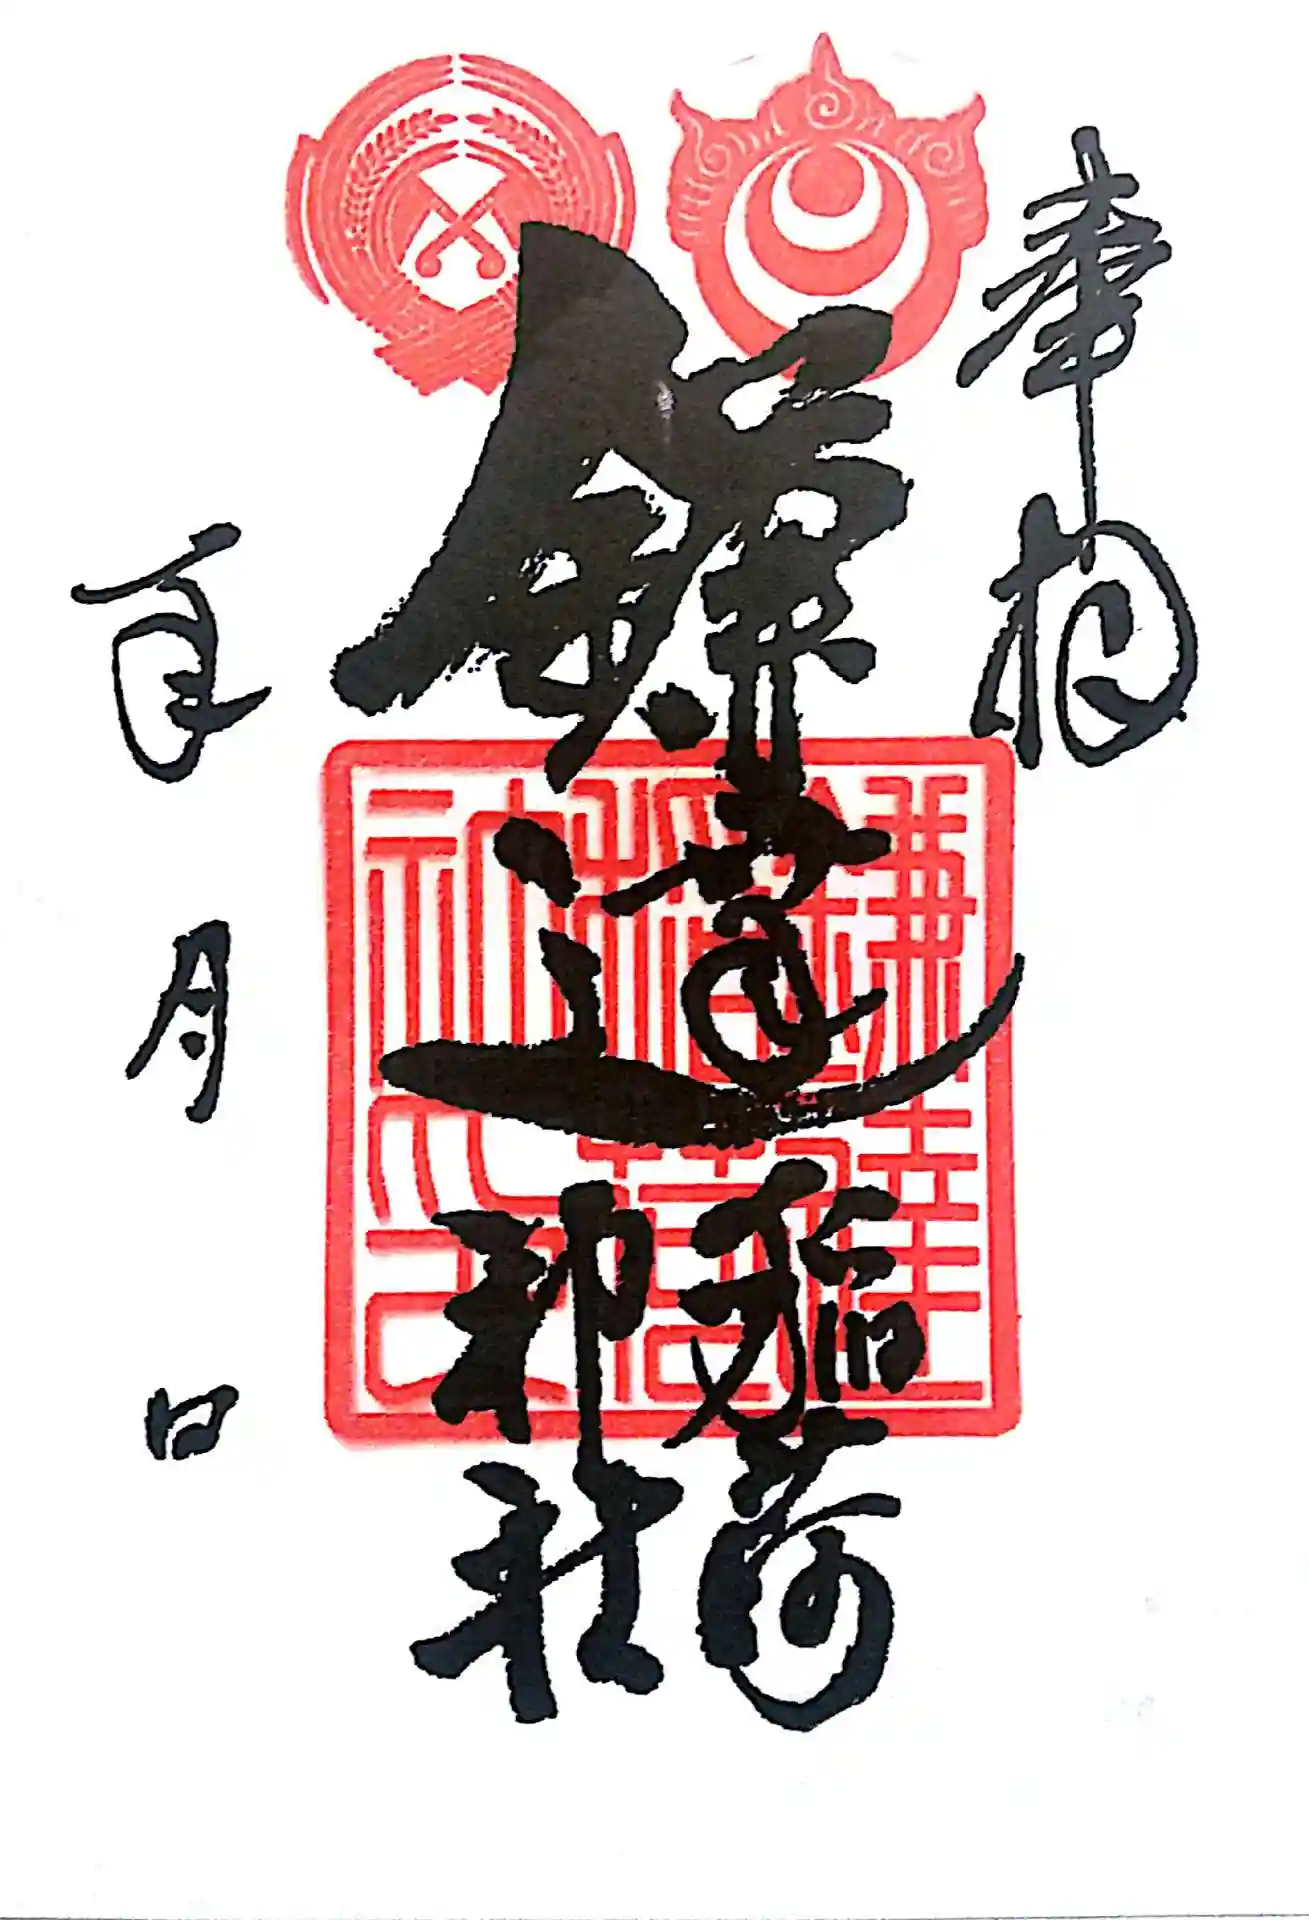 奉拝
鎌達稲荷神社
年月日
鎌達
稲荷